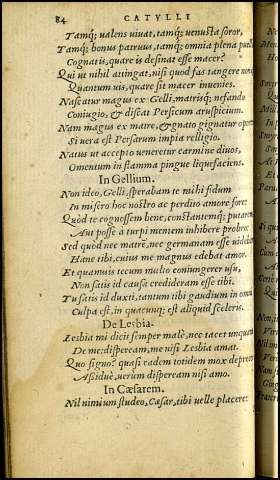 84 CATVLLI
Tamq́; ualens uiuat, tamq́; uenusta soror,
Tamq́; bonus patruus, tamq́; omnia plena puellis
Cognatis, quare is desinat esse macer?
Qui ut nihil attingat, nisi quod fas tangere non
Quantum uis, quare sit macer inuenies.
Nascatur magus ex Gelli, matrisq́; nefando
Coniugio, & discat Persicum aruspicium.
Nam magus ex matre, & gnato gignatur oport
Si uera est Persarum impia relligio.
Natus ut accepto ueneretur carmine diuos,
Omentum in flamma pingue liquefaciens.
In Gellium.
Non ideo, Gelli, sperabam te mihi fidum
In misero hoc nostro ac perdito amore fore:
Quòd te cognossem bene, constantemq́; putarem
Aut posse à turpi mentem inhibere probro:
Sed quòd nec matrē, nec germanam esse uideba
Hanc tibi, cuius me magnus edebat amor.
Et quamuis tecum multo coniungerer usu,
Non satis id causæ credideram esse tibi.
Tu satis id duxti, tantum tibi gaudium in omni
Culpa est, in quacunq; est aliquid sceleris.
De Lesbia.
Lesbia mi dicit semper malè, nec tacet unquam
De me: dispeream, me nisi Lesbia amat.
Quo signo? quasi eadem totidem mox depreco
Assiduè, uerum dispeream nisi amo.
In Cæsarem.
Nil nimium studeo, Cæsar, tibi uelle placere: